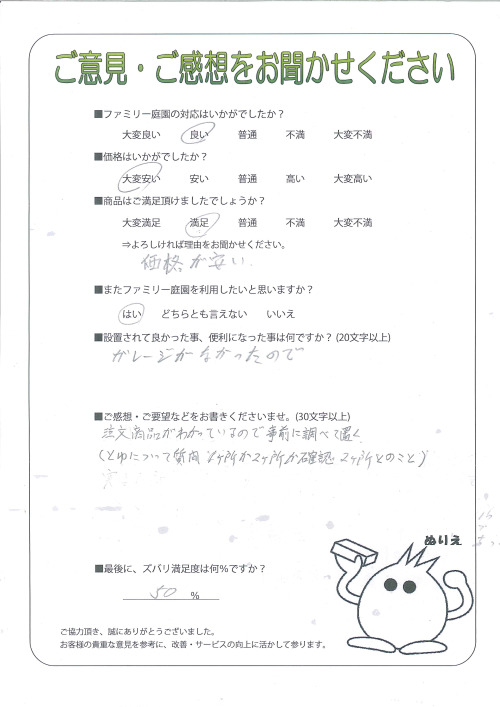 ご意見・ご感想をお聞かせください
■ファミリー庭園の対応はいかがでしたか？
大変良い 良い 普通 不満 大変不満
■価格はいかがでしたか？
大変安い 安い 普通 高い 大変高い
■商品はご満足頂けましたでしょうか？
大変満足 満足 普通 不満 大変不満
⇒よろしければ理由をお聞かせください。
価格が安い.
■またファミリー庭園を利用したいと思いますか？
はい どちらとも言えない いいえ
■設置されて良かった事、便利になった事は何ですか？(20文字以上)
ガレージがなかったので
■ご感想・ご要望などをお書きくださいませ。(30文字以上)
注文商品がわかっているので事前に調べて置く
(とゆについて質問 1ヶ所か2ヶ所か確認 2ヶ所とのこと)
ぬりえ
■最後に、ズバリ満足度は何%ですか？
50 %
ご協力頂き、誠にありがとうございました。
お客様の貴重な意見を参考に、改善・サービスの向上に活かして参ります。